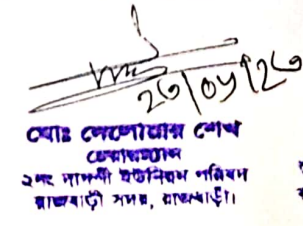 ২৩/০৮/২৩
মোঃ দেলোয়ার শেখ
চেয়ারম্যান
২নং ইউনিয়ন পরিষদ
রাজবাড়ী সদর, রাজবাড়ী।